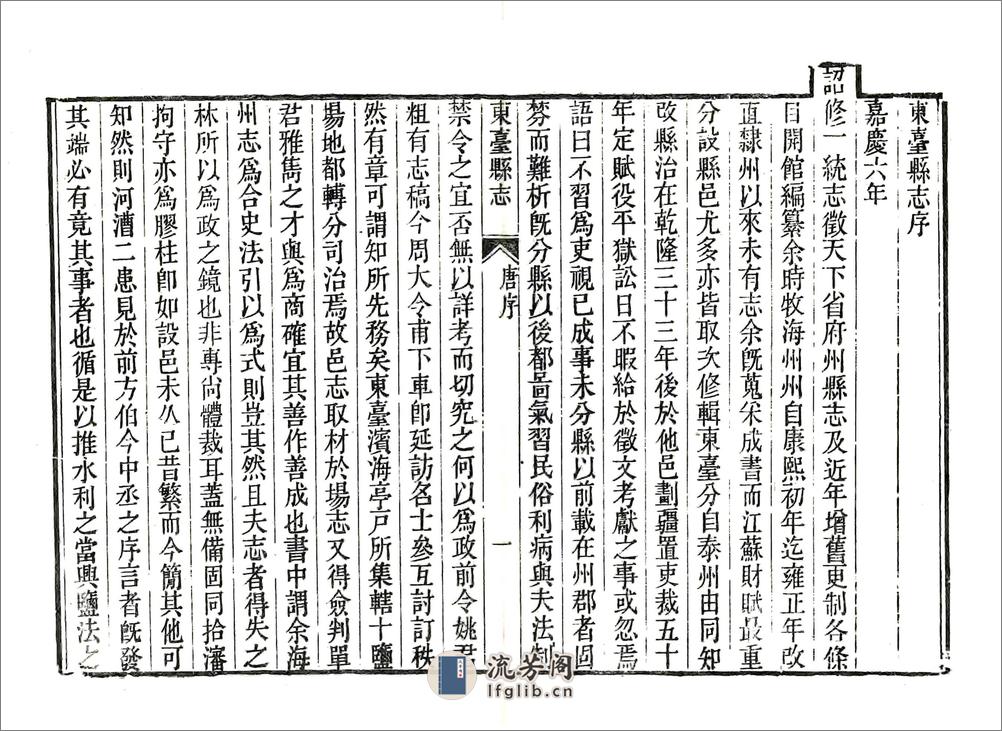 東臺縣志序
嘉慶六年
詔修一統志徵天下省府州縣志及近年增舊更制各條
目開館編纂余時牧海州州自康熙初年迄雍正年改
直隸州以來未有志余旣蒐采成書而江蘇財賦最重
分設縣邑尤多亦皆取次修輯東臺分自泰州由同知
改縣治在乾隆三十三年後於他邑劃疆置吏裁五十
年定賦役平獄訟日不暇給於徵文考獻之事或忽焉
語曰不習爲吏視已成事未分縣以前載在州郡者固
棼而難析旣分縣以後都啚氣習民俗利病與夫法制
東臺縣志
唐序
一
禁令之宜否無以詳考而切究之何以爲政前令姚君
粗有志稿今周大令甫下車卽延訪名士參互討訂秩
然有章可謂知所先務矣東臺濱海亭戸所集轄十鹽
場地都轉分司治焉故邑志取材於場志又得僉判單
君雅雋之才與爲商確宜其善作善成也書中謂余海
州志爲合史法引以爲式則豈其然且夫志者得失之
林所以爲政之鏡也非專尙體裁耳蓋無備固同拾瀋
拘守亦爲膠柱卽如設邑未久已昔繁而今簡其他可
知然則河漕二患見於前方伯今中丞之序言者旣發
其端必有竟其事者也循是以推水利之當興鹽法之
流芳阁
lfglib.cn